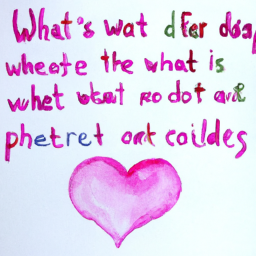 What's wat dfer dsap
wheefe the what is
whet wbat ro dot are
phetret ort coildes